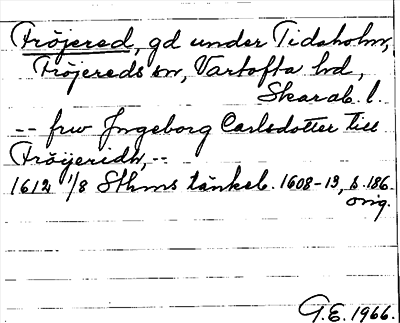 Fröjered, gd under Tidaholm,
Fröjereds sn, Vartofta hd,
Skarab. l.
-- frw Jngeborg Carlsdotter till
Fröÿeridh, --
1612 1/8 Sthms tänkeb. 1608-13, s. 186.
orig.
G.E. 1966.